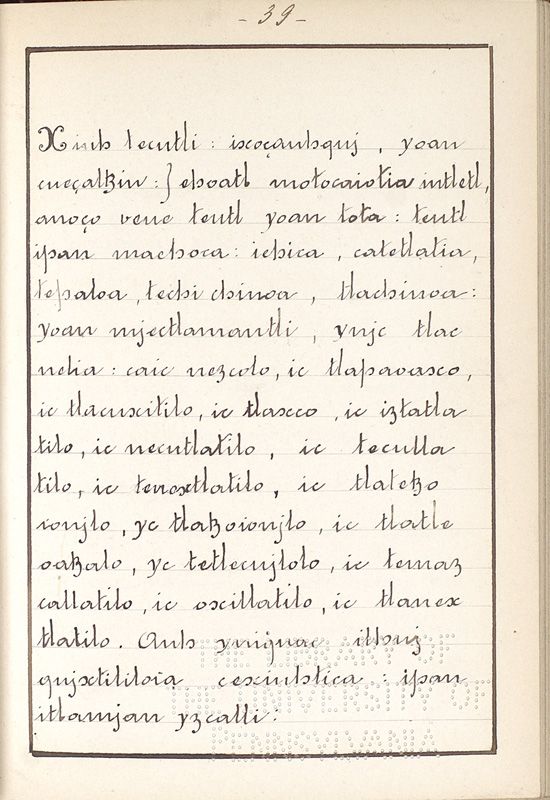 - 39 -
Xiuh tecutli : ixcoçauhquj , yoan
cueçaltzin : } ehoatl motocaiotia intletl,
anoço veue teutl yoan tota : teutl
ipan machoca : ichica , catetlatia,
tepaloa , techi chinoa , tlachinoa :
yoan mjectlamantli , ynjc tlac
nelia : caic nezcolo , ic tlapavaxco ,
ic tlacuxitilo , ic tlaxco , ic iztatla
tilo , ic necutlatilo , ic teculla
tilo , ic tenextlatilo , ic tlatetzo
ionjlo , yc tlatzoionjlo , ic tlatle
oatzalo , yc tetlecujlolo , ic temaz
callatilo , ic oxcillatilo , ic tlanex
tlatilo . Auh ynjquac ilhuj
qujxtililoia cexiuhtica : ipan
itlamjan yzcalli :
THE LIBRARY OF
THE UNIVERSITY OF
PENNSYLVANIA